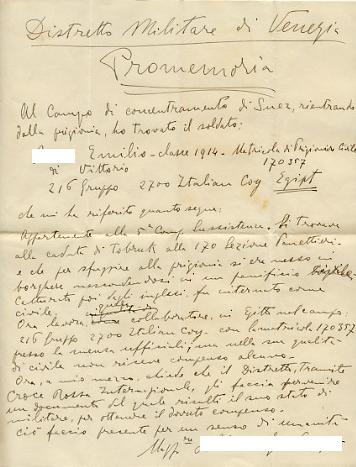 Distretto Militare di Venezia
Promemoria
Al Campo di concentramento di Suez, rientrando
dalla prigionia, ho trovato il soldato:
Emilio - classe 1914 - Matricola di Prigioniero Civile
di Vittorio 170357
216 Gruppo 2700 Italian Coy Egipt
che mi ha riferito quanto segue:
Appartenente alla 5ª Comp. Sussistenza. Si trovava
alla caduta di Tobruk alla 170 Sezione Panettieri
e che per sfuggire alla prigionia si era messo in
borghese nascondendosi in un panificio
Catturato poi dagli inglesi, fu internato come
civile.
Ora lavora, collaboratore, in Egitto nel campo:
216 gruppo 2700 Italian Coy. con matricola 170357
presso la mensa ufficiali, ma nella sua qualità
di civile non riceve compenso alcuno.
Ora, a mio mezzo, chiede che il Distretto, tramite
Croce Rossa Internazionale, gli faccia pervenire
un documento dal quale risulti il suo stato di
militare, per ottenere il dovuto compenso.
Ciò faccio presente per un senso di umanità